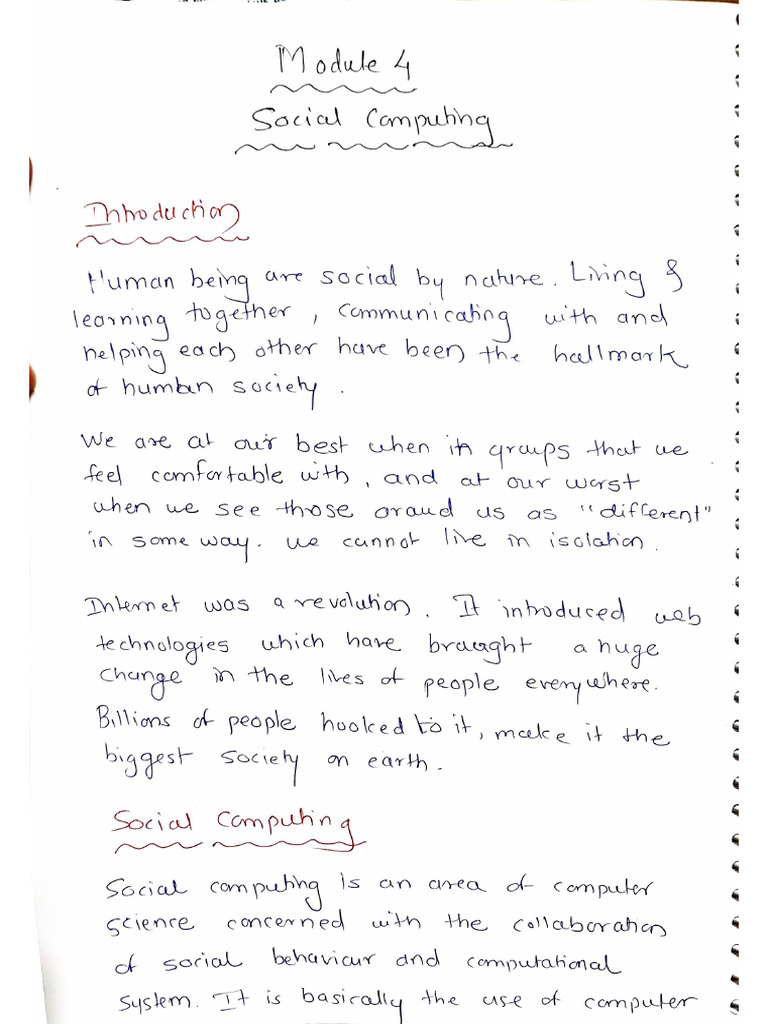 Module 4
Social Computing
Introduction
Human being are social by nature. Living &
learning together, communicating with and
helping each other have been the hallmark
of human society.
We are at our best when in groups that we
feel comfortable with, and at our worst
when we see those araud us as "different"
in some way. we cannot live in isolation.
Internet was a revolution. It introduced web
technologies which have braught a huge
change in the lives of people everywhere.
Billions of people hooked to it, make it the
biggest society on earth.
Social Computing
Social computing is an area of computer
science concerned with the collaboration
of social behaviour and computational
system. It is basically the use of computer